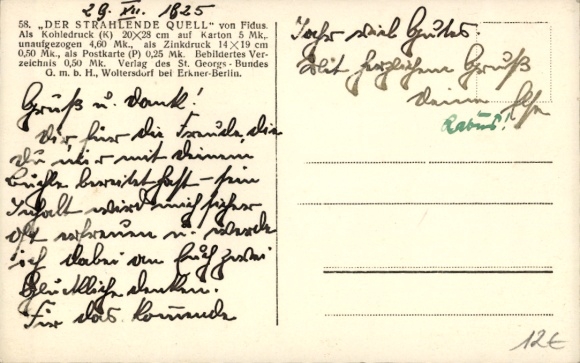 29. XII. 1925
58. „DER STRAHLENDE QUELL" von Fidus.
Als Kohledruck (K) 20×28 cm auf Karton 5 Mk.,
unaufgezogen 4,60 Mk., als Zinkdruck 14×19 cm
0,50 Mk., als Postkarte (P) 0,25 Mk. Bebildertes Ver-
zeichnis 0,50 Mk. Verlag des St. Georgs-Bundes
G. m. b. H., Woltersdorf bei Erkner-Berlin.
Gruß u. Dank!
Dir für die Freude, die
du mir mit deinem
Buchle bereitet hast – sein
Inhalt wird mich sicher
oft erfreuen u. werde
ich dabei an Euch zwei
Glückliche denken.
Für das kommende
Jahr viel Gutes.
Mit herzlichem Gruß
deine Else
12€